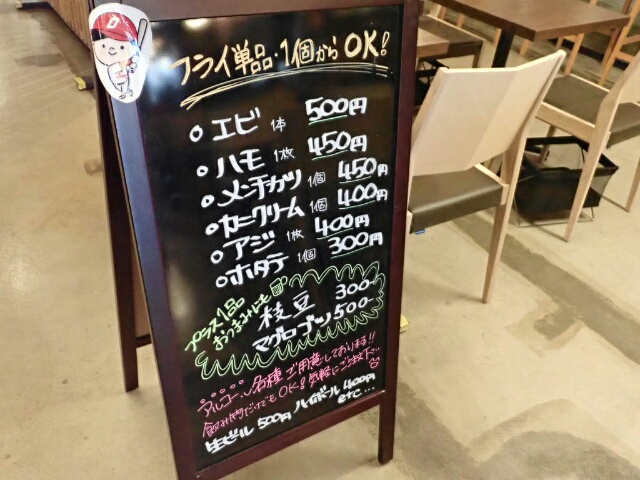 D
フライ単品・1個から OK!
エビ 1本 500円
ハモ 1枚 450円
メンチカツ 1個 450円
カニクリーム 1個 400円
アジ 1枚 400円
ホタテ 1個 300円
プラス1品
おつまみにも
枝豆 300-
マグロブツ 500-
アルコール各種ご用意しております!!
飲み物だけでもOK!気軽にご注文下さい
生ビール 500円 ハイボール 400円
etc...